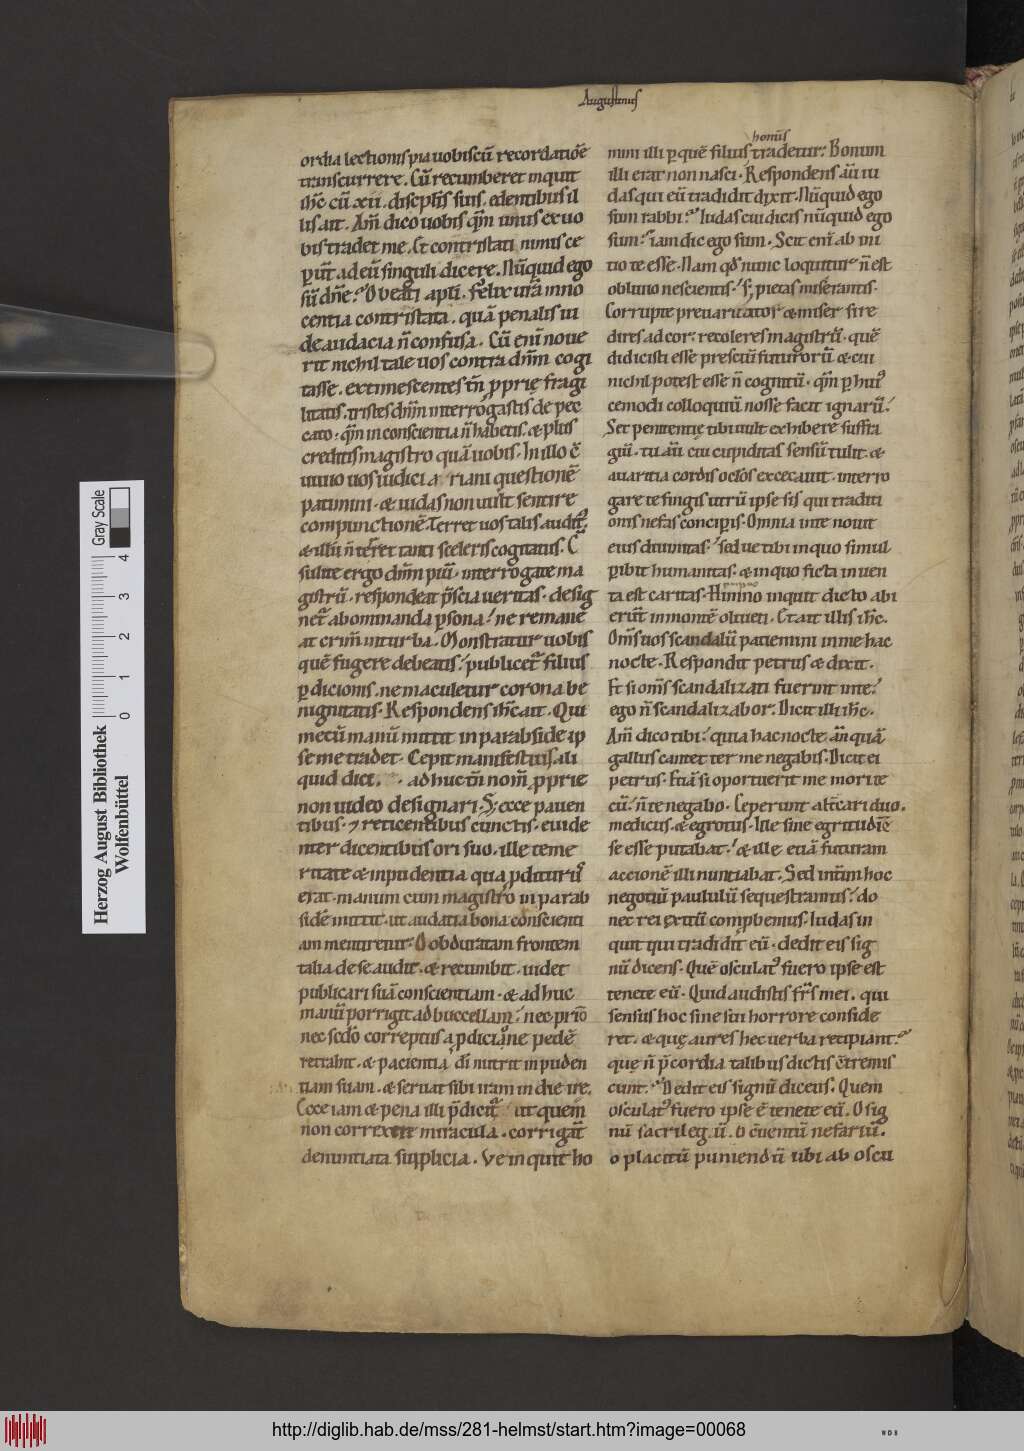 Augustinus
ordia lectionis pia uobiscū recordatiōe
transcurrere. Cū recumberet inquit
ihc̄ cū xii. discipl̄is suis. edentibus il
lis ait. Am̄ dico uobis qm̄ unus ex uo
bis tradet me. Et contristati nimis ce
per̄t ad eū singuli dicere. Nūquid ego
sū dn̄e? O beati apl̄i. Felix ur̄a inno
centia contristata. quā penalis iu
de audacia n̄ confusa. Cū enī noue
rit nichil tale uos contra dn̄m cogi
tasse. extimescentes tn̄ ꝓprię fragi
litatis. tristes dn̄m interrogastis de pec
cato. qm̄ in conscientia n̄ habetis. & plus
creditis magistro quā uobis. In illo ē
uos iudici questionē
patimini. & iudas non uult sentire
compunctionē. Terret uos talis audit᷑.
& illū n̄ terret tanti sceleris cogitatus. C
sulite ergo dn̄m piū. interrogate ma
gistrū. respondeat p̄scia ueritas. desig
net᷑ abominanda ꝑsona. ne remane
at crim̄ in turba. Monstratur uobis
quē fugere debeatis. publicet᷑ filius
ꝑdicionis. ne maculetur corona be
nignitatis. Respondens ihc̄ ait. Qui
mecū manū mittit in parabside ip
se me tradet. Cepit manifestius. ali
quid dici. adhuc tn̄ nom̄ ꝓprie
non uideo designari. S; ecce pauen
tibus. ⁊ reticentibus cunctis. euide
nter dicentibus ori suo. ille teme
ritate & inpudentia qua ꝑditurꝰ
erat. manum cum magistro in parab
sidē mittit. ut audatia bona conscienti
am mentiretur. O obduratam frontem
talia de se audit. & recumbit. uidet
publicari suā conscientiam. & adhuc
manū porrigit ad buccellam. nec prīo
nec scdō correptus a ꝑdicione pedē
retrahit. & pacientia dī nutrit inpuden
tiam suam. & seruat sibi iram in die ire.
Ecce iam & pena illi p̄dicit᷑ ut quem
non correxere miracula. corrigat
denuntiata supplicia. Ve inquit ho
homīs
mini illi ꝑ quē filius tradetur. Bonum
illi erat non nasci. Respondens aū iu
das qui eū tradidit dixit. Nūquid ego
sum rabbi? Iudas cui dicis nūquid ego
sum? iam dic ego sum. Scit enī ab ini
tio te esse. Nam qd̄ nunc loquitur n̄ est
obliuio nescientis. s; pietas miserantis.
Corrupte preuaricator & miser si re
dires ad cor. recoleres magistrū. quē
didicisti esse presciū futurorū & cui
nichil potest esse n̄ cognitū. qm̄ ꝑ huiꝰ
cemodi colloquiū nosse facit ignarū.
Set penitentię tibi uult exhibere suffra
giū. tu aū cui cupiditas sensū tulit. &
auaritia cordis oclōs excecauit. interro
gare te fingis utrū ipse sis qui traditi
onis nefas concipis. Omnia in te nouit
eius diuinitas. sed ue tibi in quo simul
ꝑibit humanitas. & in quo ficta inuen
ta est caritas. inquit dicto abi
erūt in montē oliueti. Et ait illis ihc̄.
Om̄s uos scandalū patiemini in me hac
nocte. Respondit petrus & dixit.
Et si om̄s scandalizati fuerint in te.
ego n̄ scandalizabor. Dicit illi ihc̄.
Am̄ dico tibi. quia hac nocte an̄ quā
gallus cantet ter me negabis. Dicit ei
petrus. Etiā si oportuerit me mori te
cū. n̄ te negabo. Ceperunt alt̄cari duo.
medicus. & egrotus. Iste sine egritudīe
se esse putabat. & ille etiā futuram
accionē illi nuntiabat. Sed int̄im hoc
negotiū paululū sequestramus. do
nec rei exitū comprobemus. Iudas in
quit qui tradidit eū. dedit eis sig
nū dicens. Quē osculatꝰ fuero ipse est
tenete eū. Quid audistis fr̄s mei. qui
sensus hoc sine sui horrore conside
ret. & quę aures hec uerba recipiant.
que n̄ p̄cordia talibus dictis c̄tremis
cunt. Dedit eis signū dicens. Quem
osculatꝰ fuero ipse ē tenete eū. O sig
nū sacrilegū. o c̄uentū nefariū.
o placitū puniendū ubi ab oscu
Herzog August Bibliothek
Wolfenbüttel
Gray Scale
0 1 2 3 4
http://diglib.hab.de/mss/281-helmst/start.htm?image=00068
WDB